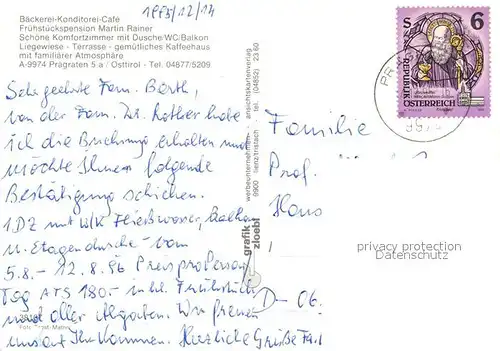 1995/12/14
Bäckerei-Konditorei-Café
Frühstückspension Martin Rainer
Schöne Komfortzimmer mit Dusche/WC/Balkon
Liegewiese - Terrasse - gemütliches Kaffeehaus
mit familiärer Atmosphäre
A-9974 Prägraten 5 a / Osttirol - Tel. 04877/5209
Sehr geehrte Fam. Barth,
von der Fam. Dr. Rother habe
ich die Buchung erhalten und
möchte Ihnen folgende
Bestätigung schicken.
1 DZ mit W/K Fließwasser, Balkon
u. Etagendusche - vom
5.8. - 12.8.96 Preis pro Person/
Tag ATS 180.- inkl. Frühstück
und aller Abgaben. Wir freuen
uns auf Ihr Kommen. Herzliche Grüße Fam.
werbeunternehmen - ansichtskartenverlag
9900 lienz/tristach tel. (04852) 23 60
grafik
zloebl
S 6
REPUBLIK
ÖSTERREICH
PR
997
Familie
Prof.
Hans
D- 06
privacy protection
Datenschutz